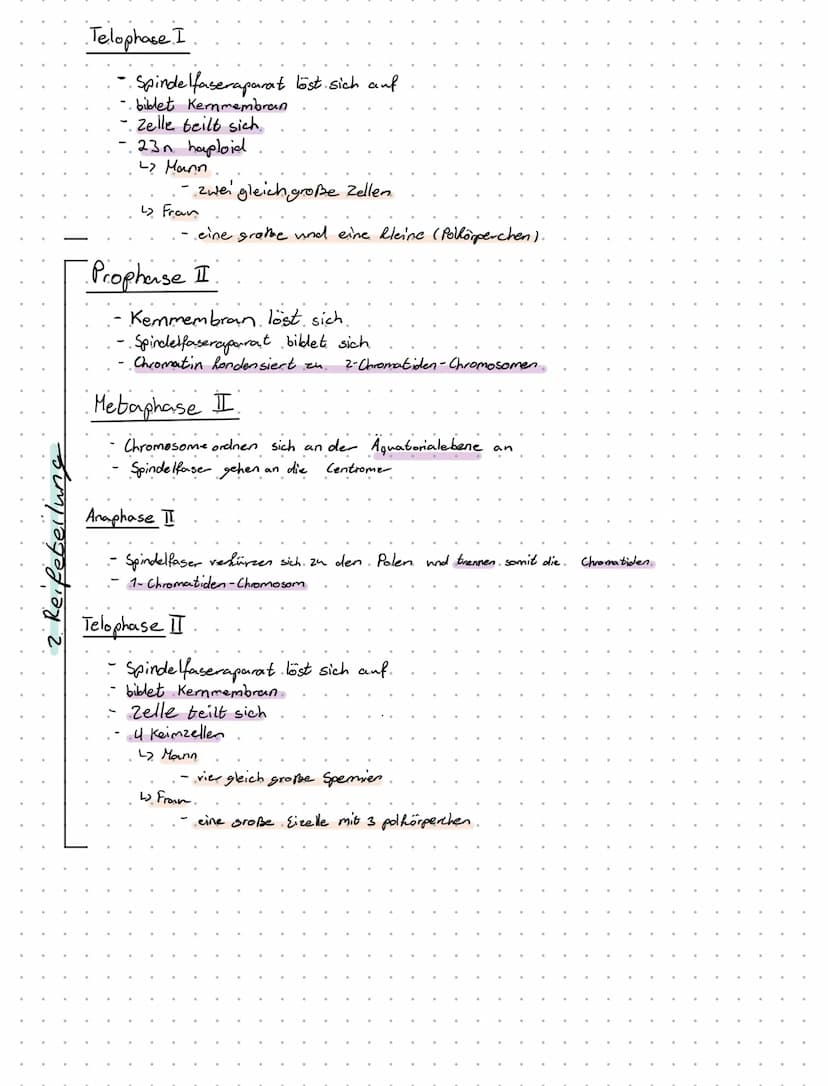 Telophase I
- Spindelfaseraparat löst sich auf
- biblet Kernmembran
- Zelle teilt sich
- 23n haploid
↳ Mann
- zwei gleich große Zellen
↳ Frau
- eine große und eine kleine (Polkörperchen).
2. Reifeteilung
Prophase II
- Kernmembran löst sich
- Spindelfaseraparat biblet sich
- Chromatin kondensiert zu 2-Chromatiden-Chromosomen
Metaphase II
- Chromosome ordnen sich an der Äquatorialebene an
- Spindelfaser gehen an die Centrome
Anaphase II
- Spindelfaser verkürzen sich zu den Polen und trennen somit die Chromatiden
- 1-Chromatiden-Chromosom
Telophase II
- Spindelfaseraparat löst sich auf
- biblet Kernmembran
- Zelle teilt sich
- 4 Keimzellen
↳ Mann
- vier gleich große Spermien
↳ Frau
- eine große Eizelle mit 3 polkörperchen